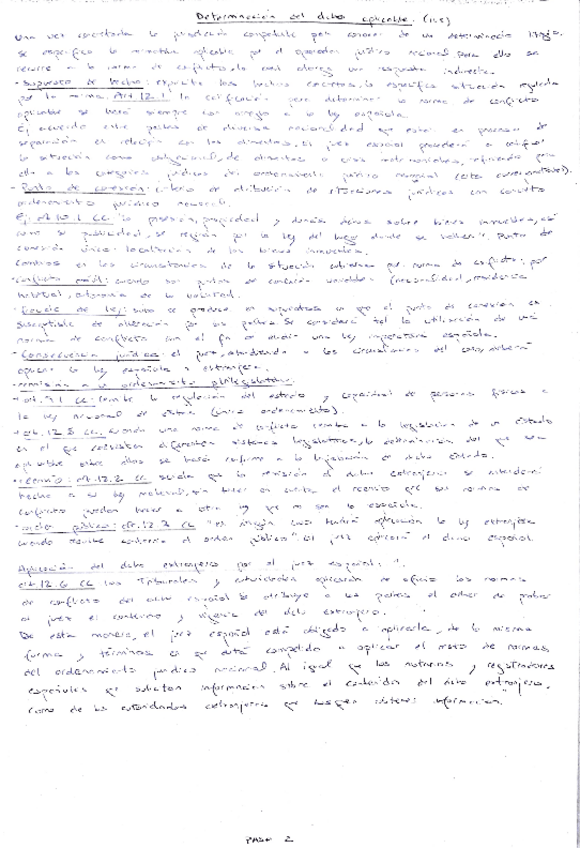 Determinación del dcho aplicable. (115)
Una vez concretada la jurisdicción competente para conocer de un determinado litigio,
se especifica la normativa aplicable por el operador jurídico nacional. Para ello se
recurre a la norma de conflicto, la cual otorga una respuesta indirecta.
- Supuesto de hecho: los hechos concretos, la específica situación regulada
por la norma. Art 12.1 la calificación para determinar la norma de conflicto
aplicable se hará siempre con arreglo a la ley española.
Ej. acuerdo entre partes de diversa nacionalidad que están en proceso de
separación en relación con los alimentos, el juez español procederá a calificar
la situación como obligacional, de alimentos o crisis matrimoniales, refiriendo para
ello a las categorías jurídicas del ordenamiento jurídico nacional
- Punto de conexión: criterio de atribución de situaciones jurídicas con concreto
ordenamiento jurídico nacional.
Ej. art 10.1 CC "la posesión, propiedad y demás dchos sobre bienes inmuebles, así
como su publicidad, se regirán por la ley del lugar donde se hallen". Punto de
conexión único: localización de los bienes inmuebles.
Cambios en las circunstancias de la situación por norma de conflicto: por
- Conflicto móvil: cuando son puntos de conexión variables (nacionalidad, residencia
habitual, autonomía de la voluntad.
- Fraude de ley: se produce en supuestos en que el punto de conexión es
susceptible de alteración por las partes. Se considerará tal la utilización de una
norma de conflicto con el fin de eludir una ley imperativa española.
- Consecuencia jurídica: el juez, atendiendo a las circunstancias del caso, deberá
aplicar la ley española o extranjera.
- remisión a un ordenamiento plurilegislativo.
* art. 9.1 CC: remite la regulación del estado y capacidad de personas físicas a
la ley nacional de estas (único ordenamiento).
* art. 12.5 CC, cuando una norma de conflicto remita a la legislación de un Estado
en el que coexistan diferentes sistemas legislativos, la determinación del que sea
aplicable entre ellos se hará conforme a la legislación de dicho Estado.
- reenvío: art. 12.2 CC señala que la remisión al dcho extranjero se entenderá
hecha a su ley material, sin tener en cuenta el reenvío que sus normas de
conflicto puedan hacer a otra ley que no sea la española.
- orden público: art. 12.3 CC "en ningún caso tendrá aplicación la ley extranjera
cuando resulte contraria al orden público" el juez aplicará el dcho español.
Aplicación del dcho extranjero por el juez español:
art. 12.6 CC los Tribunales y autoridades aplicarán de oficio las normas
de conflicto del dcho español. Se atribuye a las partes el deber de probar
al juez el contenido y vigencia del dcho extranjero.
De esta manera, el juez español está obligado a aplicarla, de la misma
forma y términos en que está compelido a aplicar el resto de normas
del ordenamiento jurídico nacional. Al igual que los notarios y registradores
españoles que solicitan información sobre el contenido del dcho extranjero.
como de las autoridades extranjeras que hagan obtener información.
PASH 2